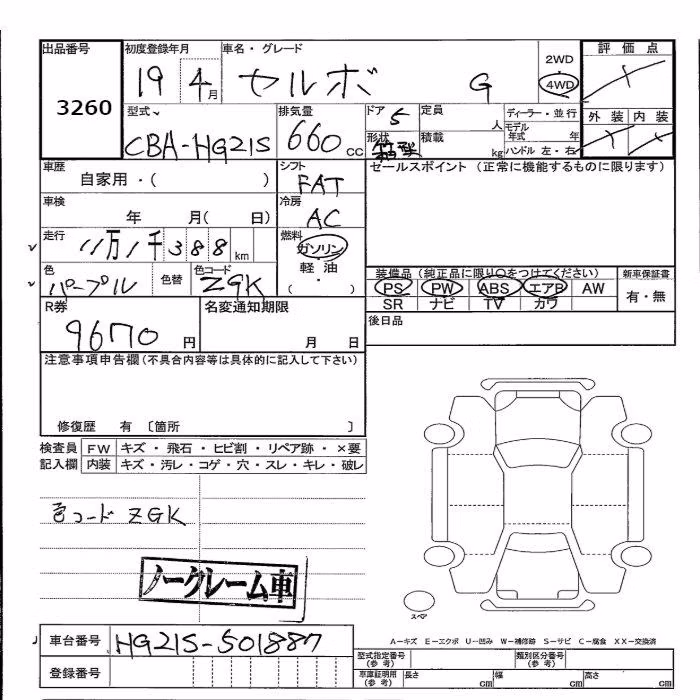 出品番号
3260
初度登録年月
19 4月
車名・グレード
セルボ G
2WD
4WD
評価点
外装 内装
型式
CBA-HG21S
排気量
660 cc
ドア 5
形状
定員 人
積載 kg
ディーラー・並行
モデル年式 年
ハンドル 左・右
車歴
自家用・( )
シフト
FAT
セールスポイント (正常に機能するものに限ります)
車検
年 月( 日)
冷房
AC
走行
11万1千388km
燃料
ガソリン
軽油
・
( )
色
パープル
色替
色コード
ZGK
装備品(純正品に限り○をつけてください)
PS PW ABS エアB AW
SR ナビ TV カワ
新車保証書
有・無
R券
9670 円
名変通知期限
月 日
後日品
注意事項申告欄(不具合内容等は具体的に記入して下さい)
修復歴 有 〔箇所 〕
検査員記入欄
FW キズ・飛石・ヒビ割・リペア跡・×要
内装 キズ・汚レ・コゲ・穴・スレ・キレ・破レ
色コード ZGK
ノークレーム車
スペア
A-キズ E-エクボ U-凹み W-補修跡 S-サビ C-腐食 XX-交換済
車台番号
HG21S-501887
登録番号
型式指定番号(参考)
類別区分番号(参考)
車庫証明用(参考)
長さ cm
幅 cm
高さ cm